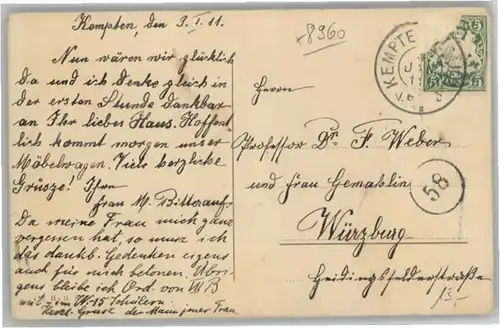 Kempten, den 3. I. 11.
Nun wären wir glücklich
da und ich denke gleich in
der ersten Stunde dankbar
an Ihr liebes Haus. Hoffent
lich kommt morgen unser
Möbelwagen. Viele herzliche
Grüsze! Ihre
Frau M. Bitterauf.
Da meine Frau mich ganz
vergessen hat, so muss ich
des dankb. Gedenken eigens
auch für mich betonen. Übri
gens bleibe ich Ord. von
mit 15 Schülern
Herzl. Gruss der Mann jener Frau.
8960
KEMPTE
5
Herrn
Professor Dr. F. Weber
und Frau Gemahlin
58
Würzburg
Heidingsfelderstraße
15,-